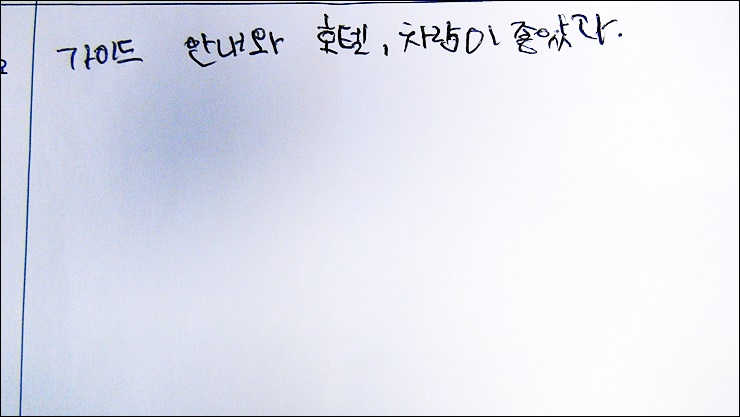 가이드 안내와 호텔, 차량이 좋았다.